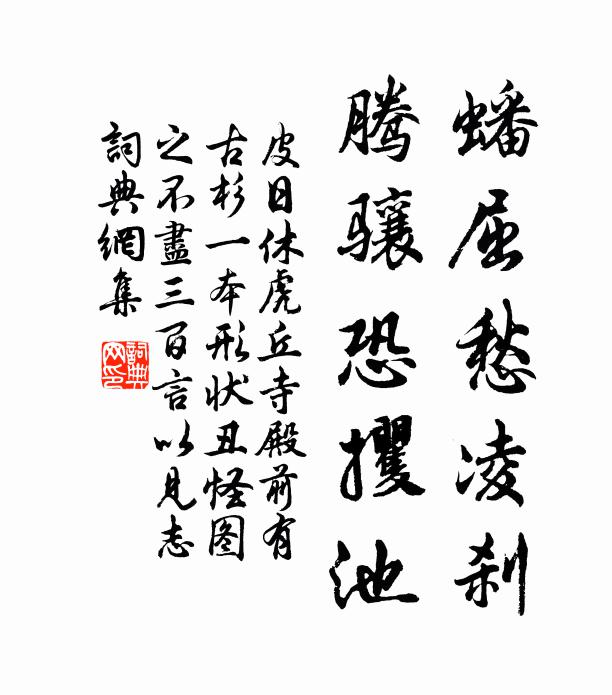 蟠屈愁凌刹
腾骧恐攫池
皮日休虎丘寺殿前有
古杉一本形状丑怪图
之不盡三百言以見志
詞典網集
詞典
网印